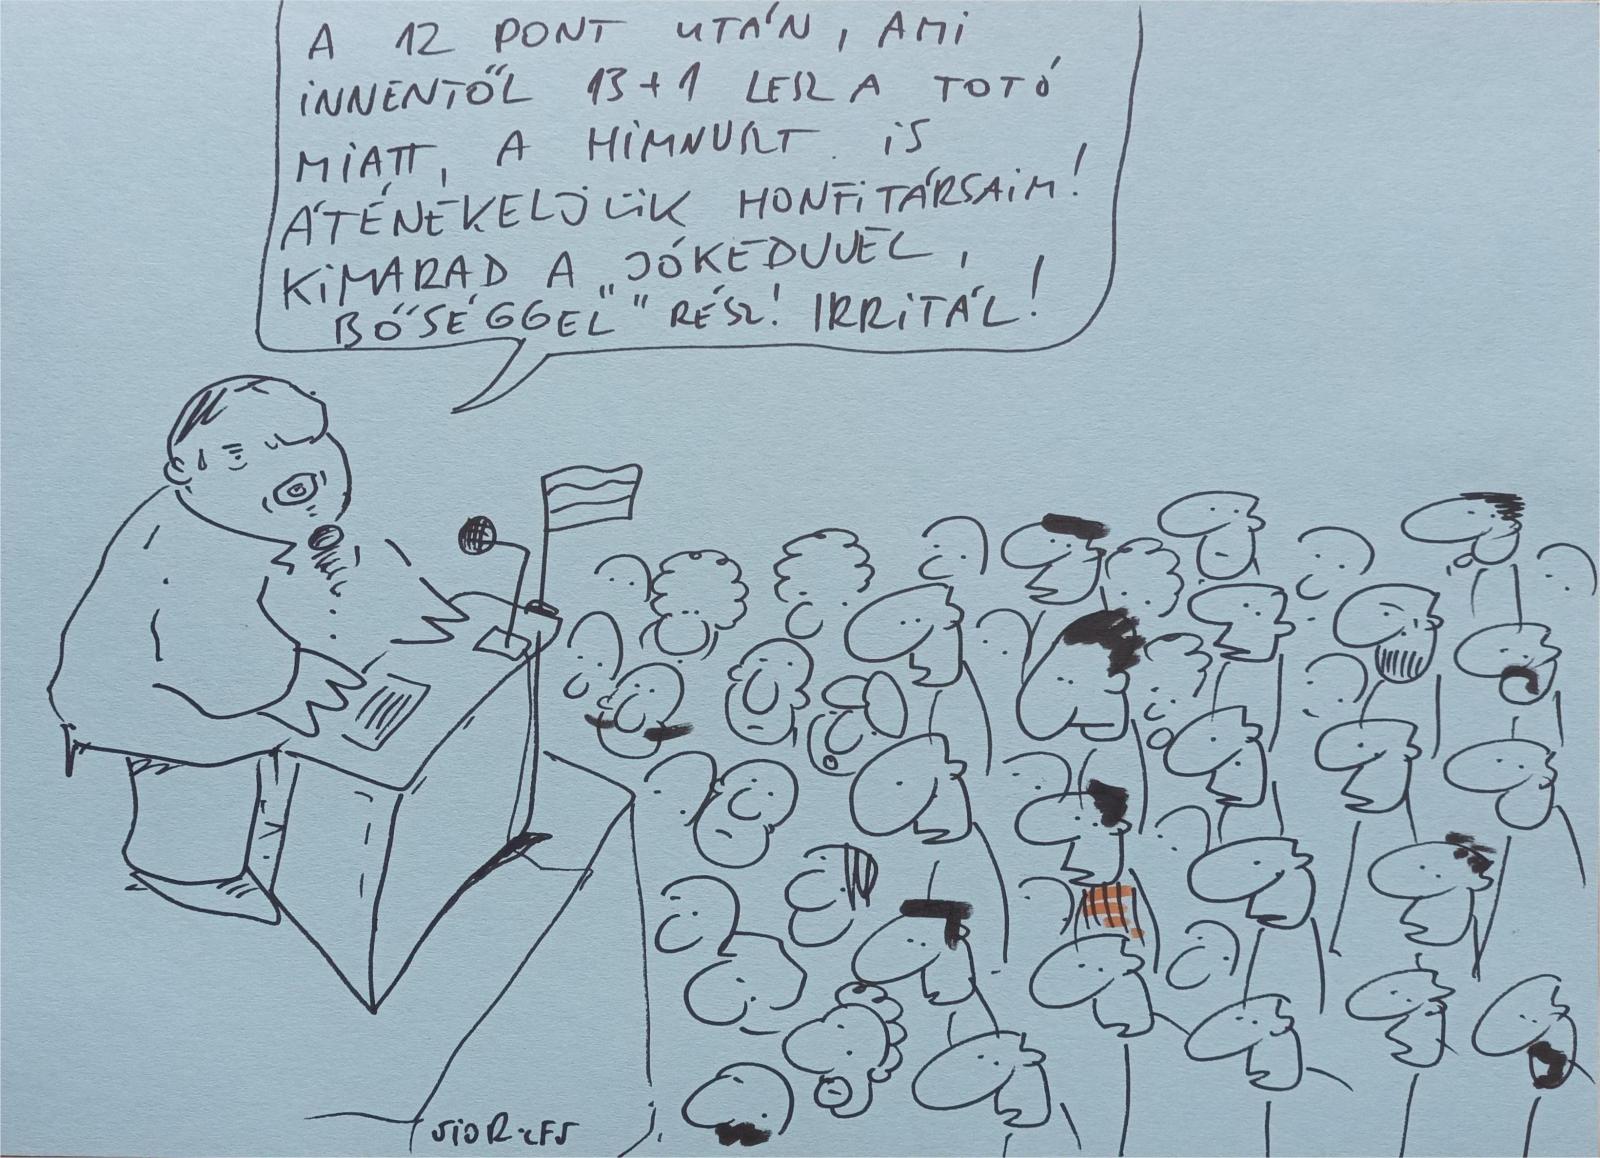 A 12 PONT UTÁN, AMI
INNENTŐL 13+1 LESZ A TOTÓ
MIATT, A HIMNUSZT IS
ÁTÉNEKELJÜK HONFITÁRSAIM!
KIMARAD A "JÓKEDVVEL,
BŐSÉGGEL" RÉSZ! IRRITÁL!